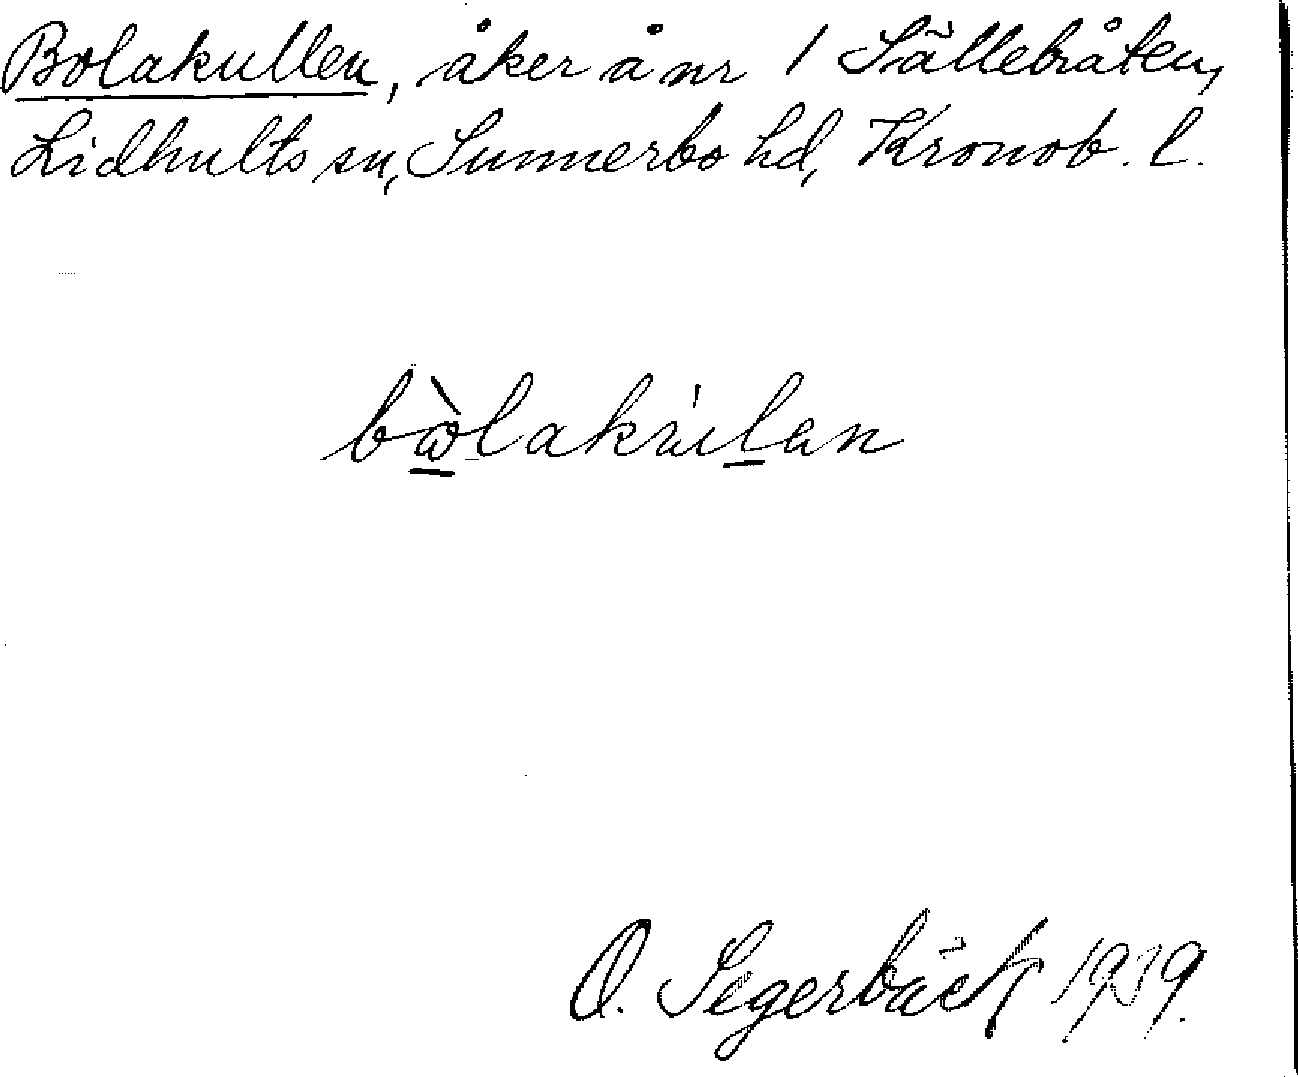 Bolakullen, åker å nr 1 Sällebråten,
Lidhults sn, Sunnerbo hd, Kronob. l.
bὼlakúlan
O. Segerbäck 1939.